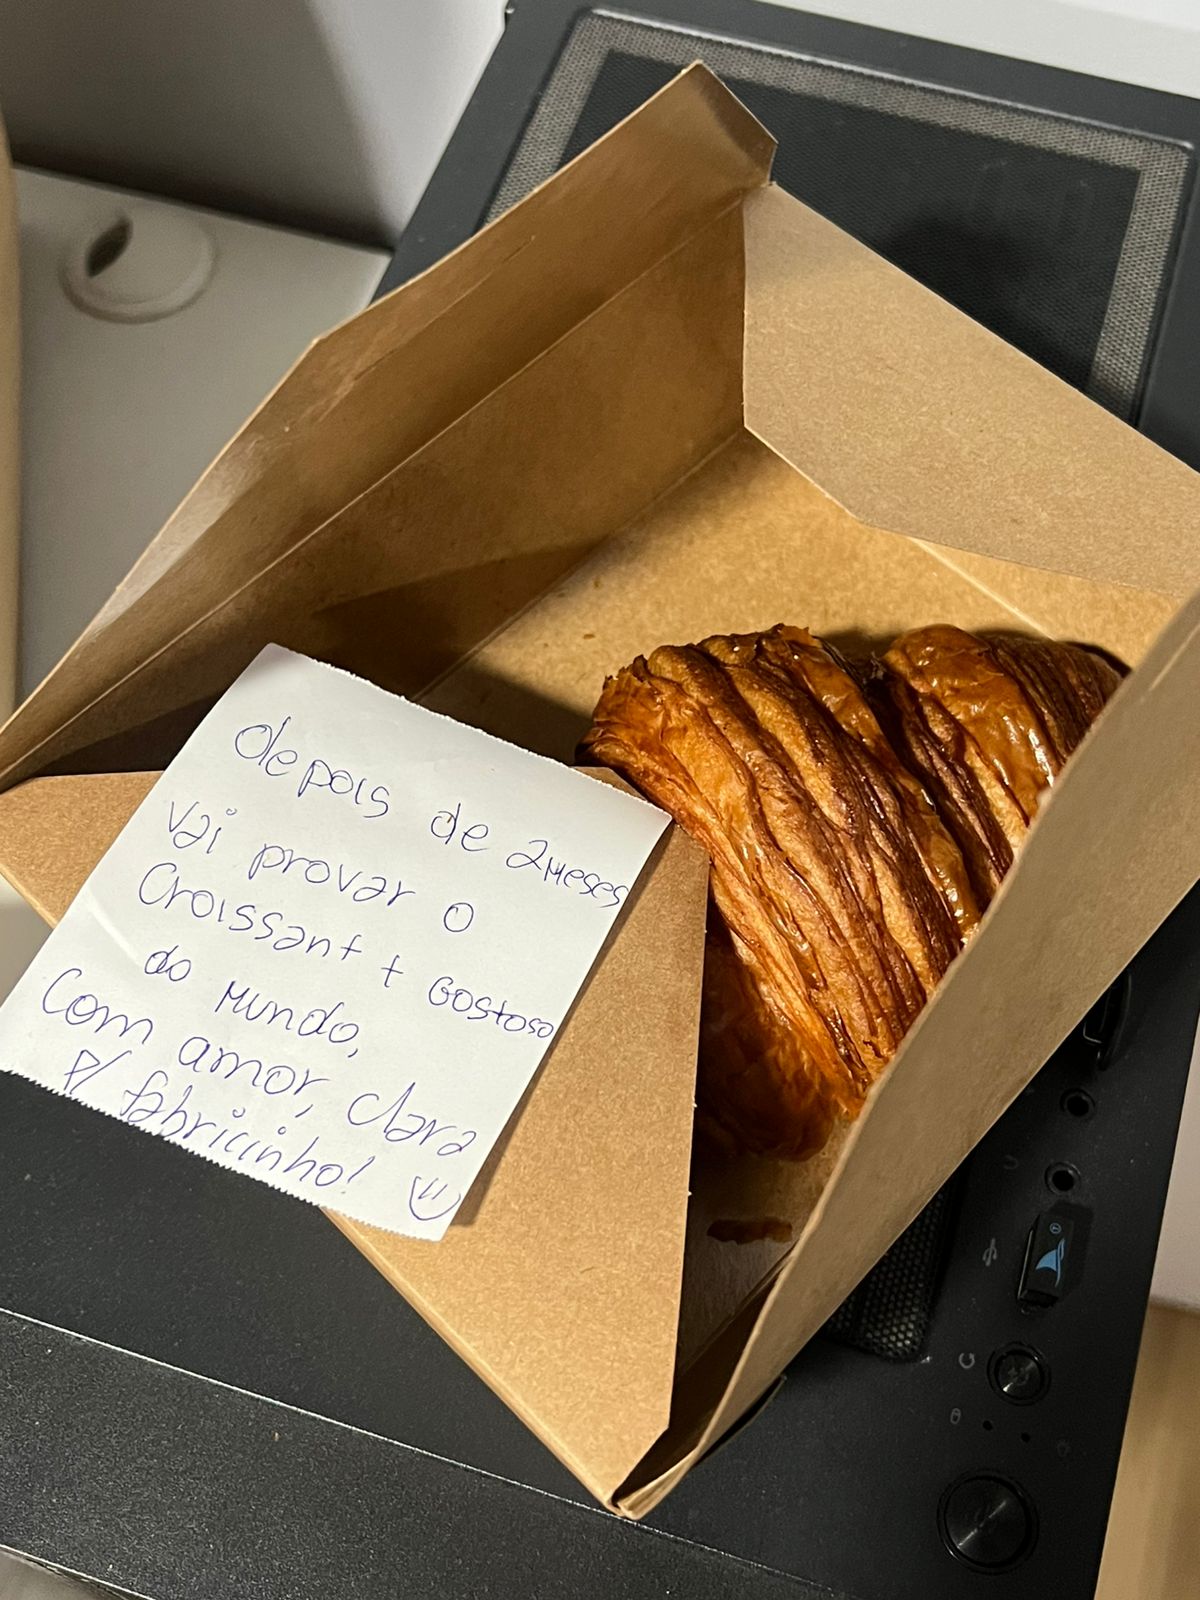 depois de 2 meses
vai provar o
Croissant + Gostoso
do mundo,
Com amor, Clara
P/ fabricinho!